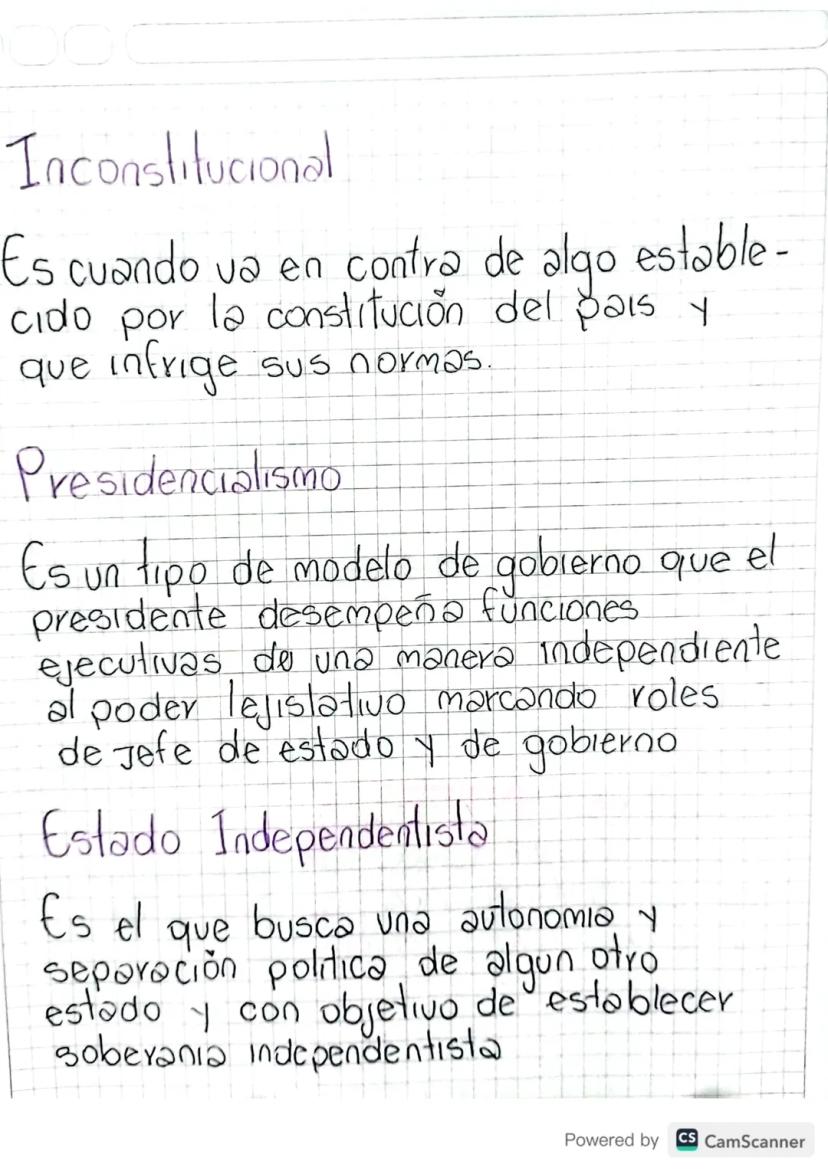 Inconstitucional
Es cuando va en contra de algo estable-
cido por la constitución del pais y
que infrige sus normas.
Presidencialismo
Es un tipo de modelo de gobierno que el
presidente desempeña funciones
ejecutivas de una manera independiente
al poder lejislativo marcando roles
de Jefe de estado y de gobierno
Estado Independentista
Es el que busca una autonomia y
separación politica de algun otro
estado y con objetivo de establecer
soberania independentista
Powered by CS CamScanner